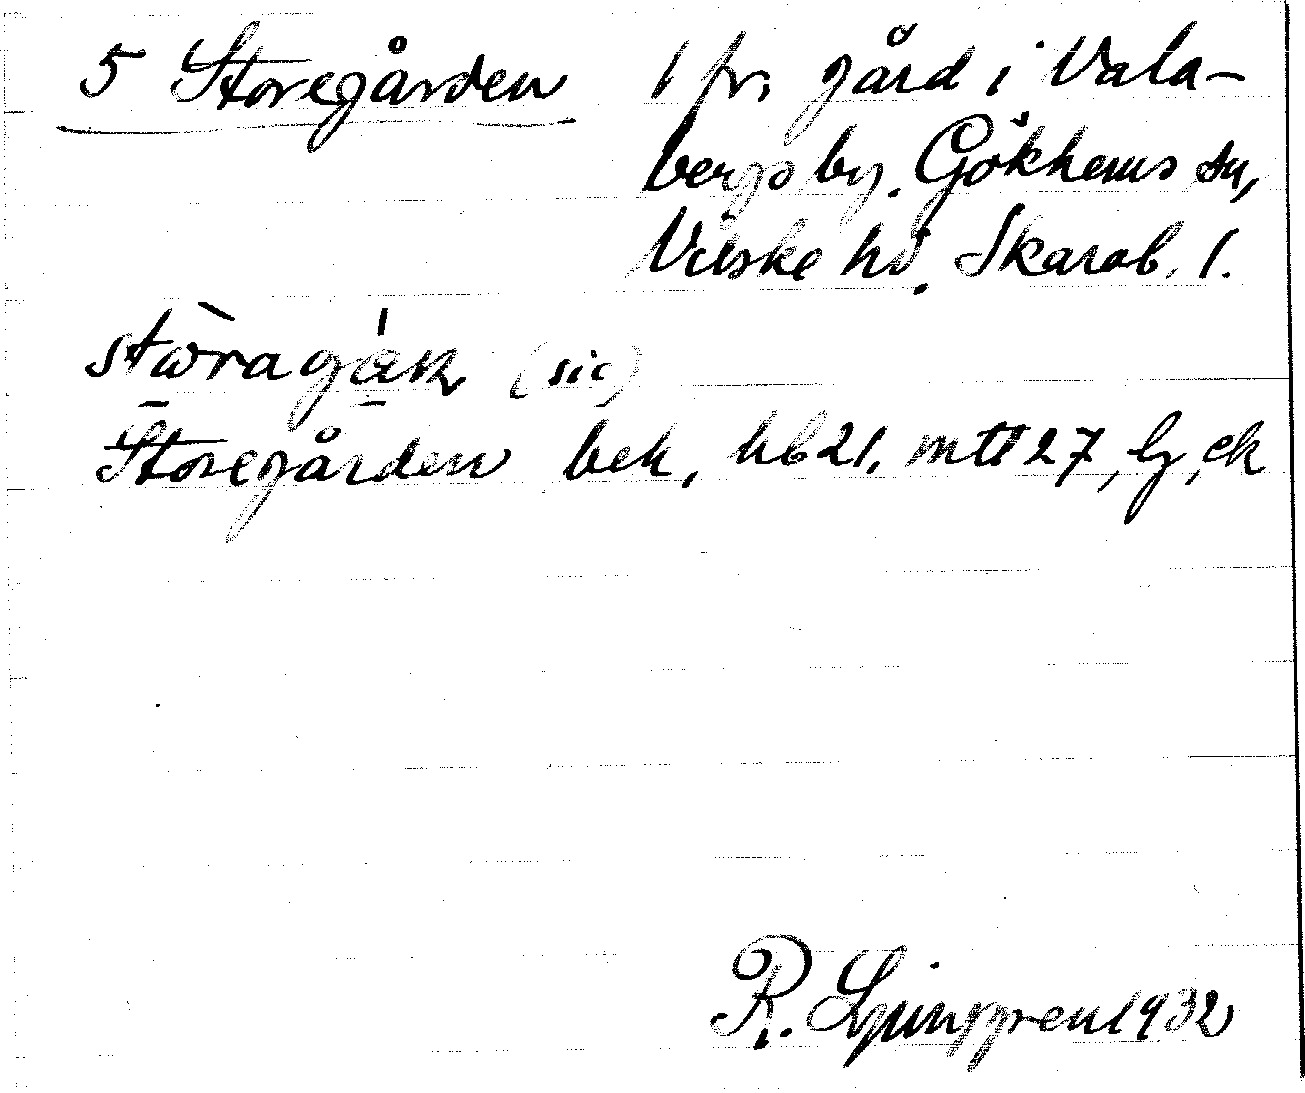 5 Storegården 1 fr. gård i Vala-
bergs by. Gökhems sn,
Vilske hd. Skarab. l.
stωragαn (sic)
Storegården bek, hb 21. mtl 27, lg, ek
R. Ljunggren 1932